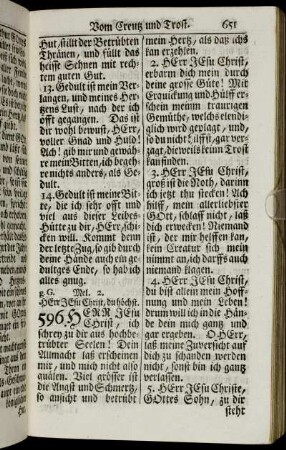 Vom Creutz und Trost. 651
Hut, stillt der Betrübten
Thränen, und füllt das
heisse Sehnen mit rech-
tem guten Gut.
13. Gedult ist mein Ver-
langen, und meines Her-
tzens Lust, nach der ich
offt gegangen. Das ist
dir wohl bewust, HErr,
voller Gnad und Huld!
Ach! gib mir und gewäh-
re mein Bitten, ich begeh-
re nichts anders, als Ge-
dult.
14. Gedult ist meine Bit-
te, die ich sehr offt und
viel aus dieser Leibes-
Hütte zu dir, HErr, schi-
cken will. Kommt denn
der letzte Zug, so gib durch
deine Hände auch ein ge-
dultges Ende, so hab ich
alles gnug.
Mel. 2.
HErr JEsu Christ, du höchst.
596. HERR JEsu
Christ, ich
schrey zu dir aus hochbe-
trübter Seelen! Dein
Allmacht laß erscheinen
mir, und mich nicht also
quälen. Viel grösser ist
die Angst und Schmertz,
so anficht und betrübt
mein Hertz, als daß ichs
kan erzehlen.
2. HERR JEsu Christ,
erbarm dich mein durch
deine grosse Güte! Mit
Erquickung und Hülff er-
schein meinem traurigen
Gemüthe, welchs elendi-
glich wird geplagt, und,
so du nicht hilffst, gar ver-
zagt, dieweils kein Trost
kan finden.
3. HERR JEsu Christ,
groß ist die Noth, darinn
ich jetzt thu stecken! Ach
hilf, mein allerliebster
GOtt, schlaff nicht, laß
dich erwecken! Niemand
ist, der mir helffen kan,
kein Creatur sich mein
nimmt an, ich darffs auch
niemand klagen.
4. HERR JEsu Christ,
du bist allein mein Hoff-
nung und mein Leben!
drum will ich in die Hän-
de dein mich gantz und
gar ergeben. O HErr,
laß meine Zuversicht auf
dich zu schanden werden
nicht, sonst bin ich gantz
verlassen.
5. HErr JEsu Christe,
GOttes Sohn, zu dir
steht